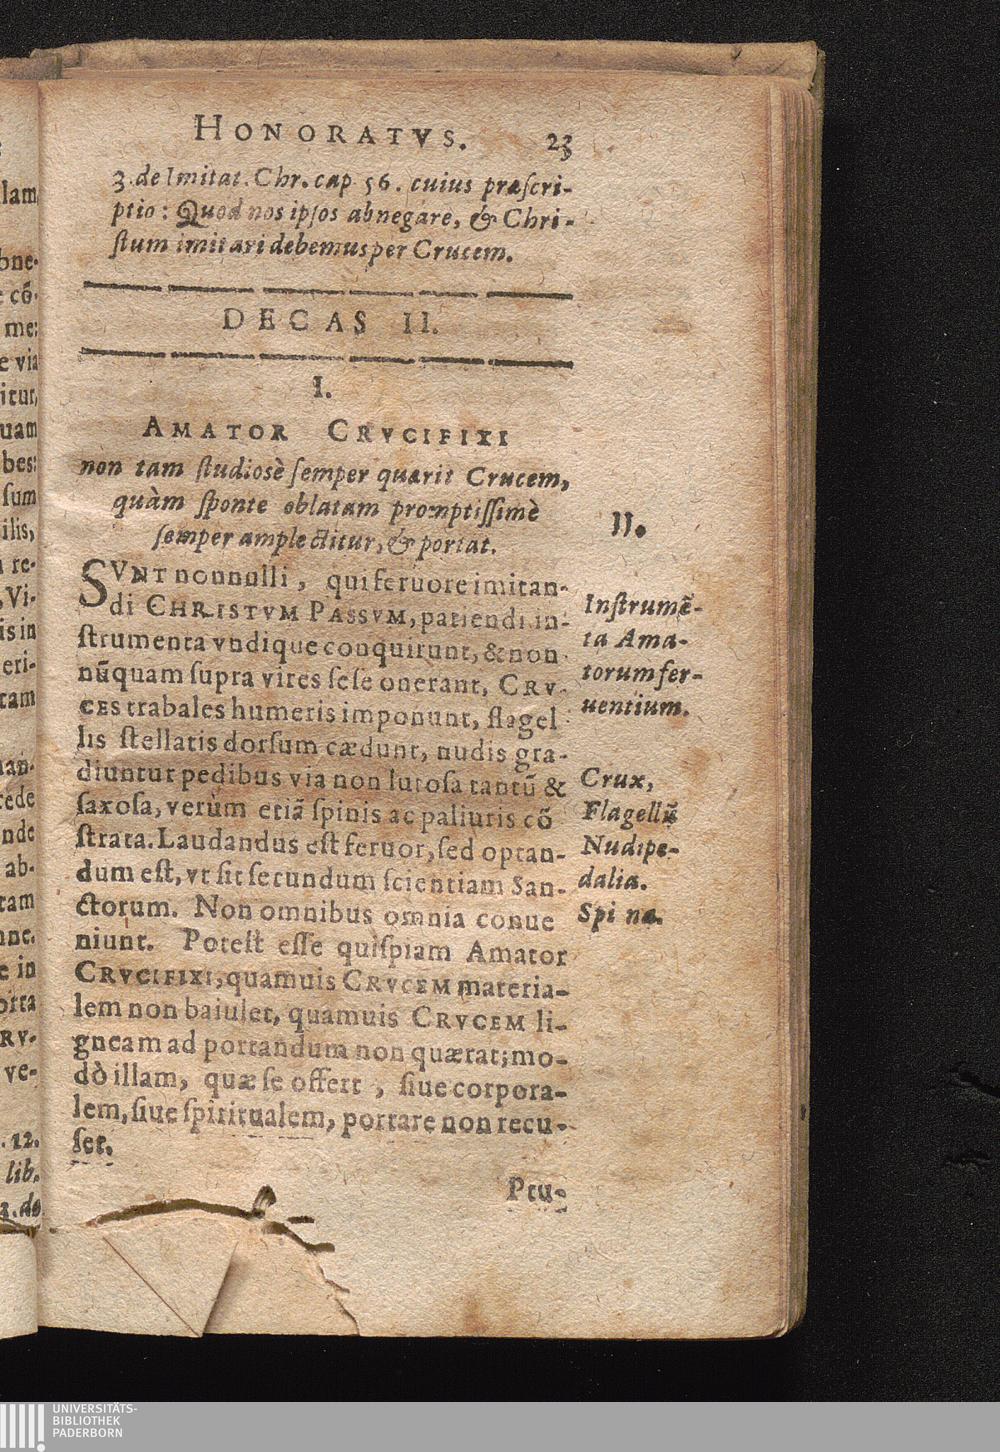 HONORATVS. 23
3. de Imitat. Chr. cap 56. cuius præscri-
ptio: Quod nos ipsos abnegare, & Chri-
stum imitari debemus per Crucem.
DECAS II.
I.
AMATOR CRVCIFIXI
non tam studiosè semper quærit Crucem,
quàm sponte oblatam promptissimè
semper amplectitur, & portat.
SVNT nonnulli, qui feruore imitan-
di CHRISTVM PASSVM, patiendi in-
strumenta vndique conquirunt, & non
nũquam supra vires sese onerant, CRV-
CES trabales humeris imponunt, flagel
lis stellatis dorsum cædunt, nudis gra-
diuntur pedibus via non lutosa tantũ &
saxosa, verùm etiã spinis ac paliuris cõ
strata. Laudandus est feruor, sed optan-
dum est, vt sit secundum scientiam San-
ctorum. Non omnibus omnia conue
niunt. Potest esse quispiam Amator
CRVCIFIXI, quamuis CRVCEM materia-
lem non baiulet, quamuis CRVCEM li-
gneam ad portandum non quærat; mo-
dò illam, quæ se offert, siue corpora-
lem, siue spiritualem, portare non recu-
set.
Ptu-
II.
Instrumẽ-
ta Ama-
torum fer-
uentium.
Crux,
Flagellũ
Nudipe-
dalia.
Spinæ.
lam
bne-
e cõ-
me:
e via
itur,
uam
bes:
sum
ilis,
re-
Vi-
is in
eri-
tam
nde
ab-
tam
e in
RV-
ve-
. 12.
lib.
UNIVERSITÄTS-
BIBLIOTHEK
PADERBORN